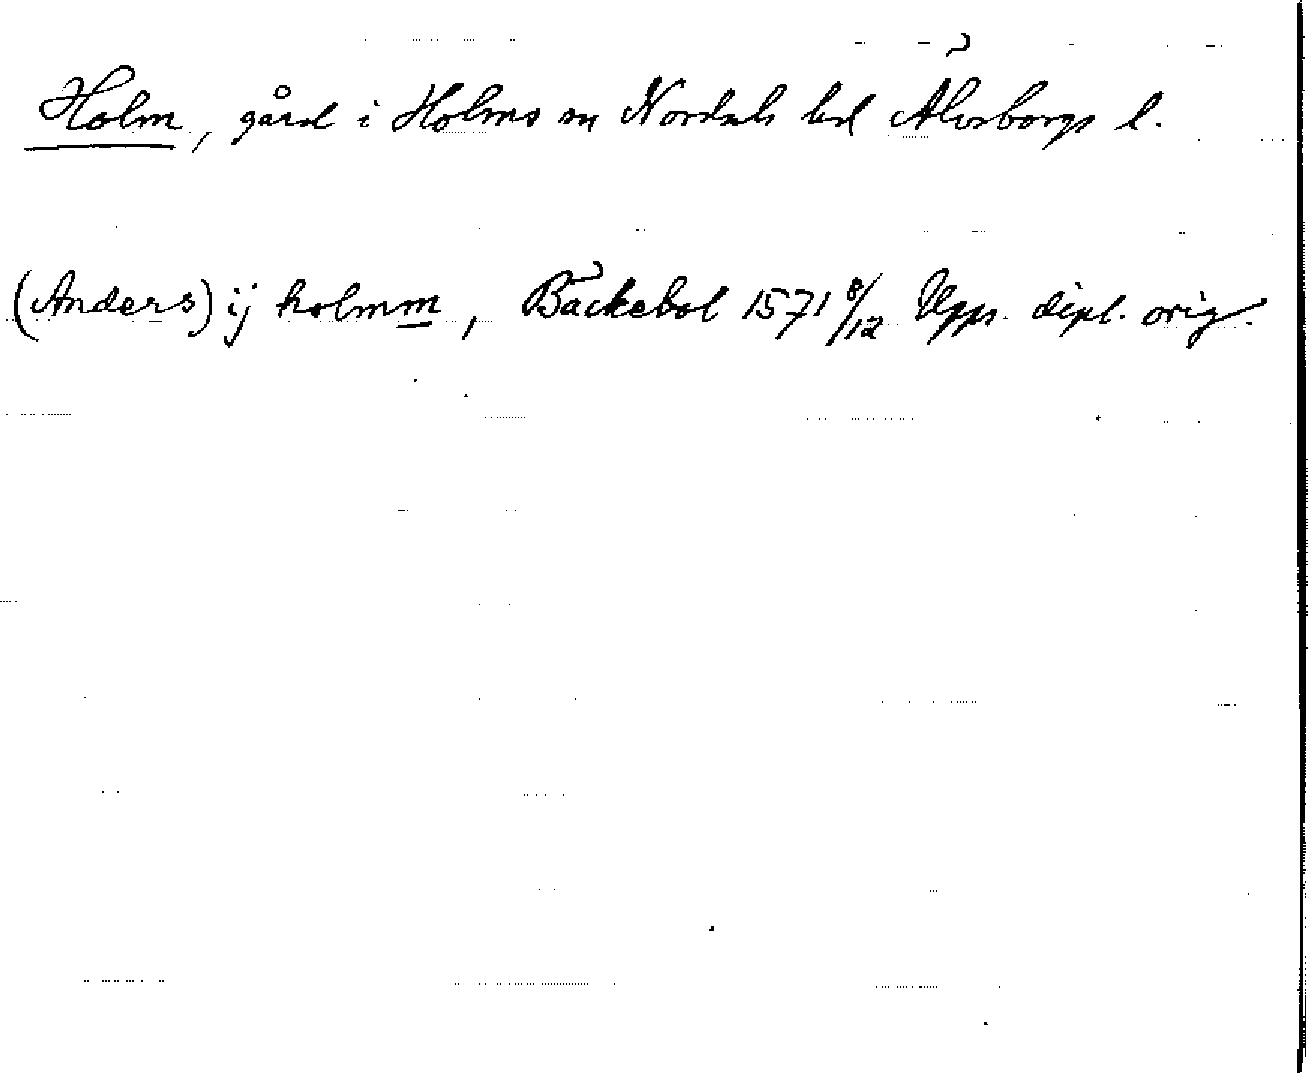 Holm, gård i Holms sn Nordals hd Älvsborgs l.
(Anders) ij holmm, Bäckebol 1571 8/12 Upps. dipl. orig.